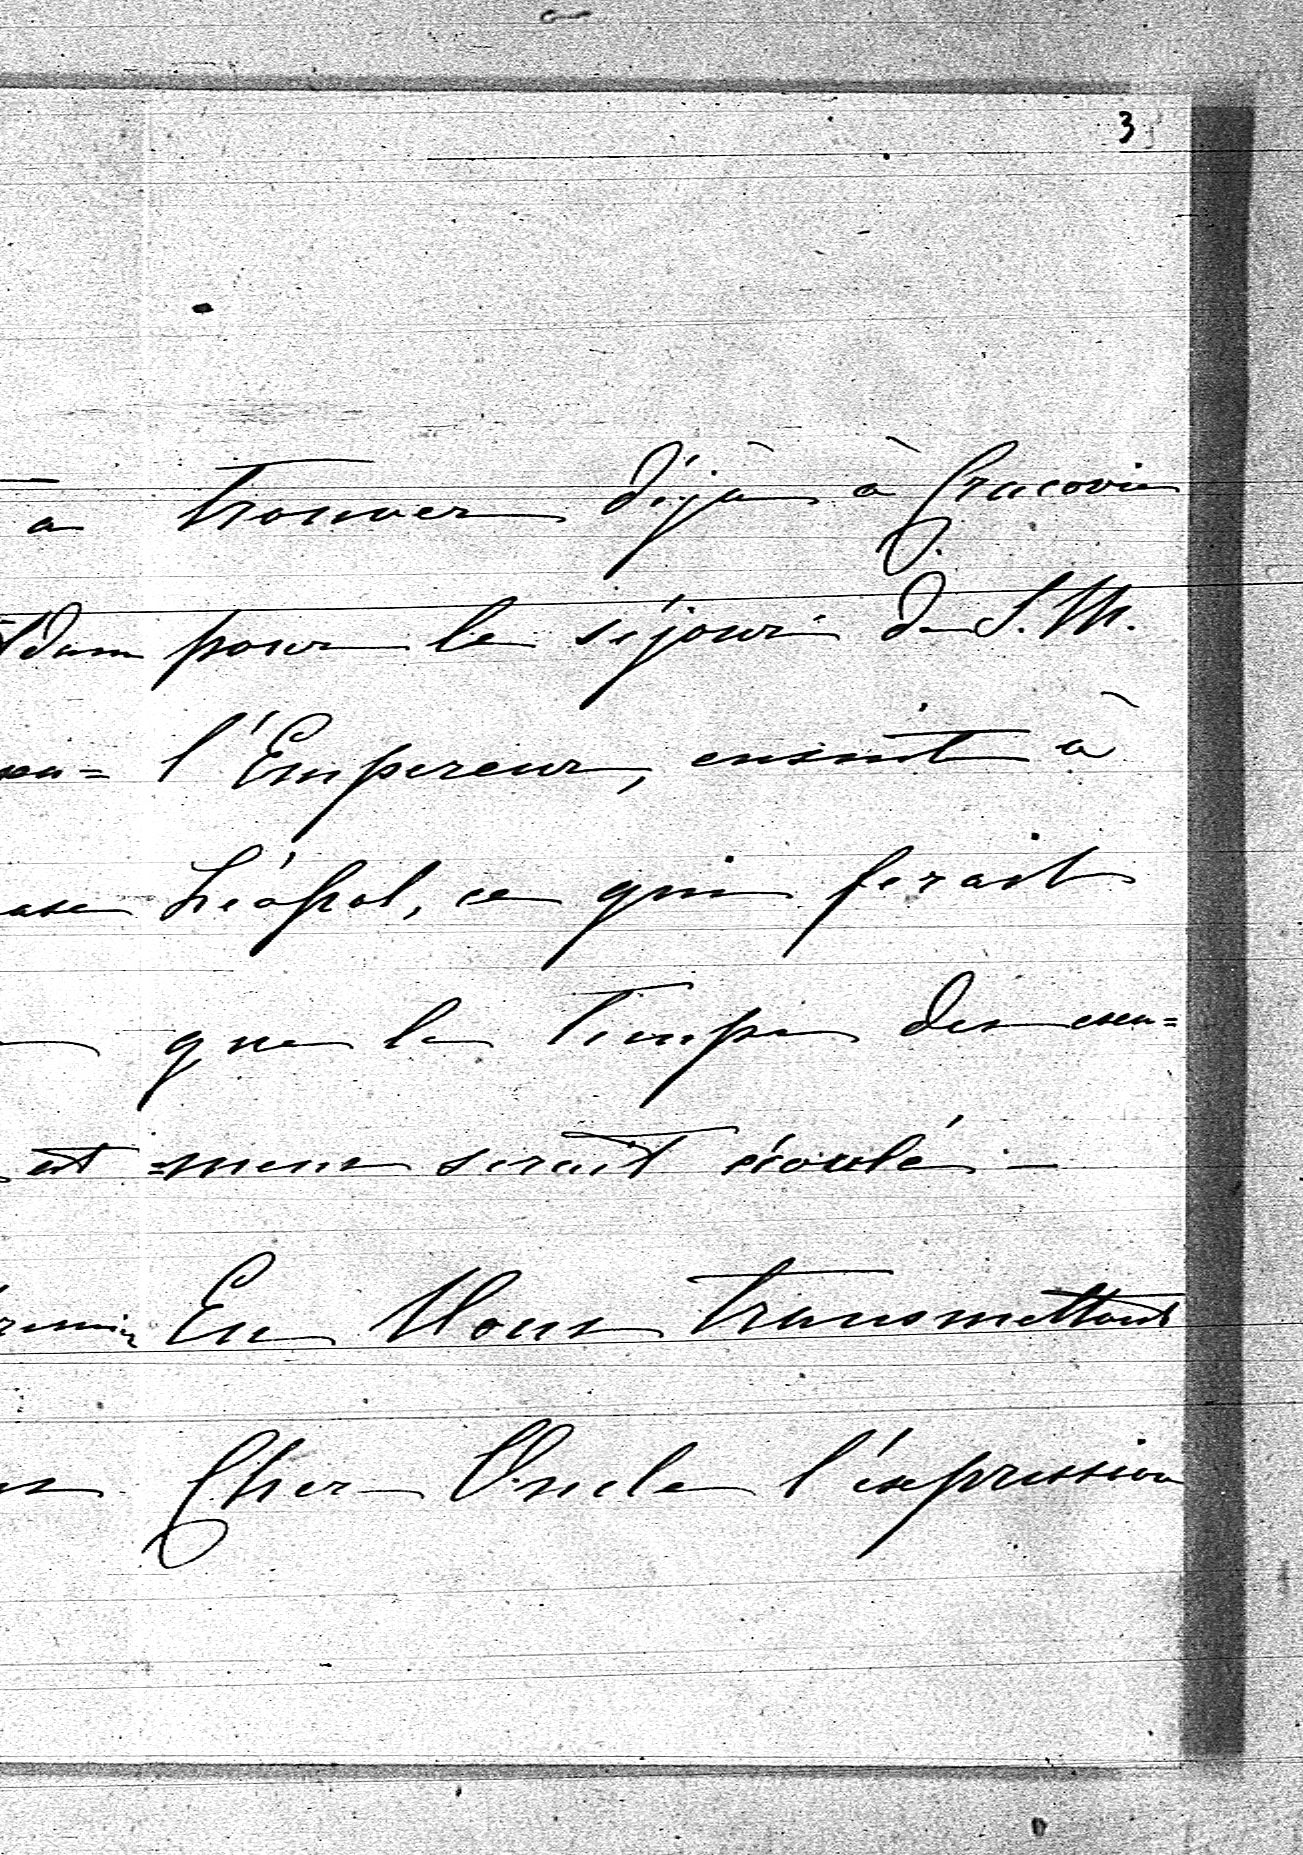 3
trouver déjà à Cracovie
pour le séjour de S. M.
l'Empereur, ensuite à
Léopol, ce qui ferait
que le temps des exa=
=mens serait écoulé. –
En Vous transmettant
Cher Oncle l'expression